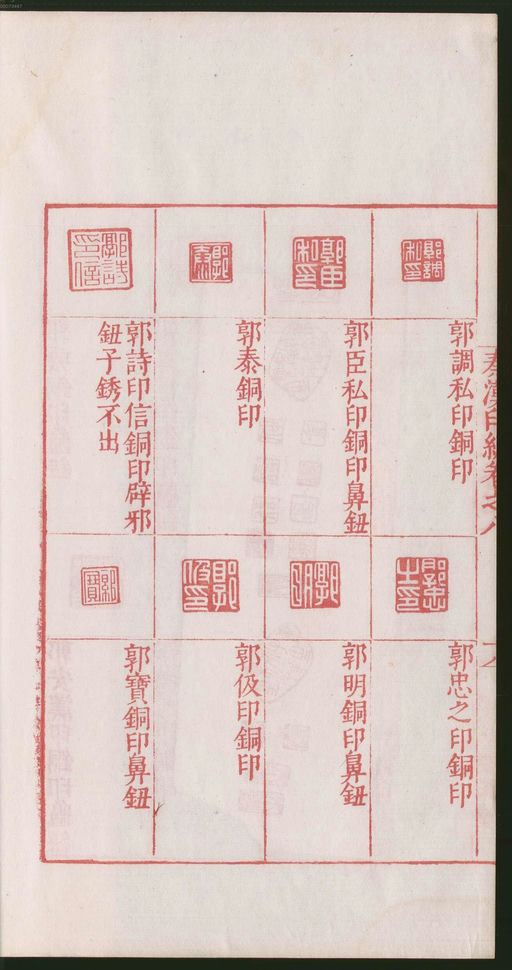 秦漢印統卷之八
郭調私印銅印
郭臣私印銅印鼻鈕
郭泰銅印
郭詩印信銅印辟邪
鈕子銹不出
郭忠之印銅印
郭明銅印鼻鈕
郭伋印銅印
郭寶銅印鼻鈕